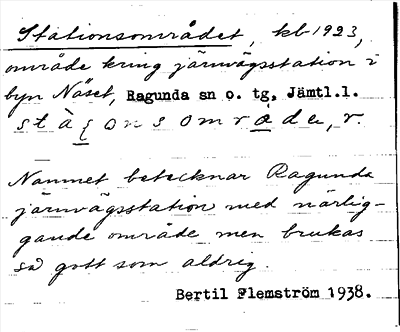 Stationsområdet, kb 1923,
område kring järnvägsstation i
byn Näset, Ragunda sn o. tg, Jämtl.l.
Namnet betecknar Ragunda
järnvägsstation med närlig-
gande område men brukas
så gott som aldrig.
Bertil Flemström 1938.